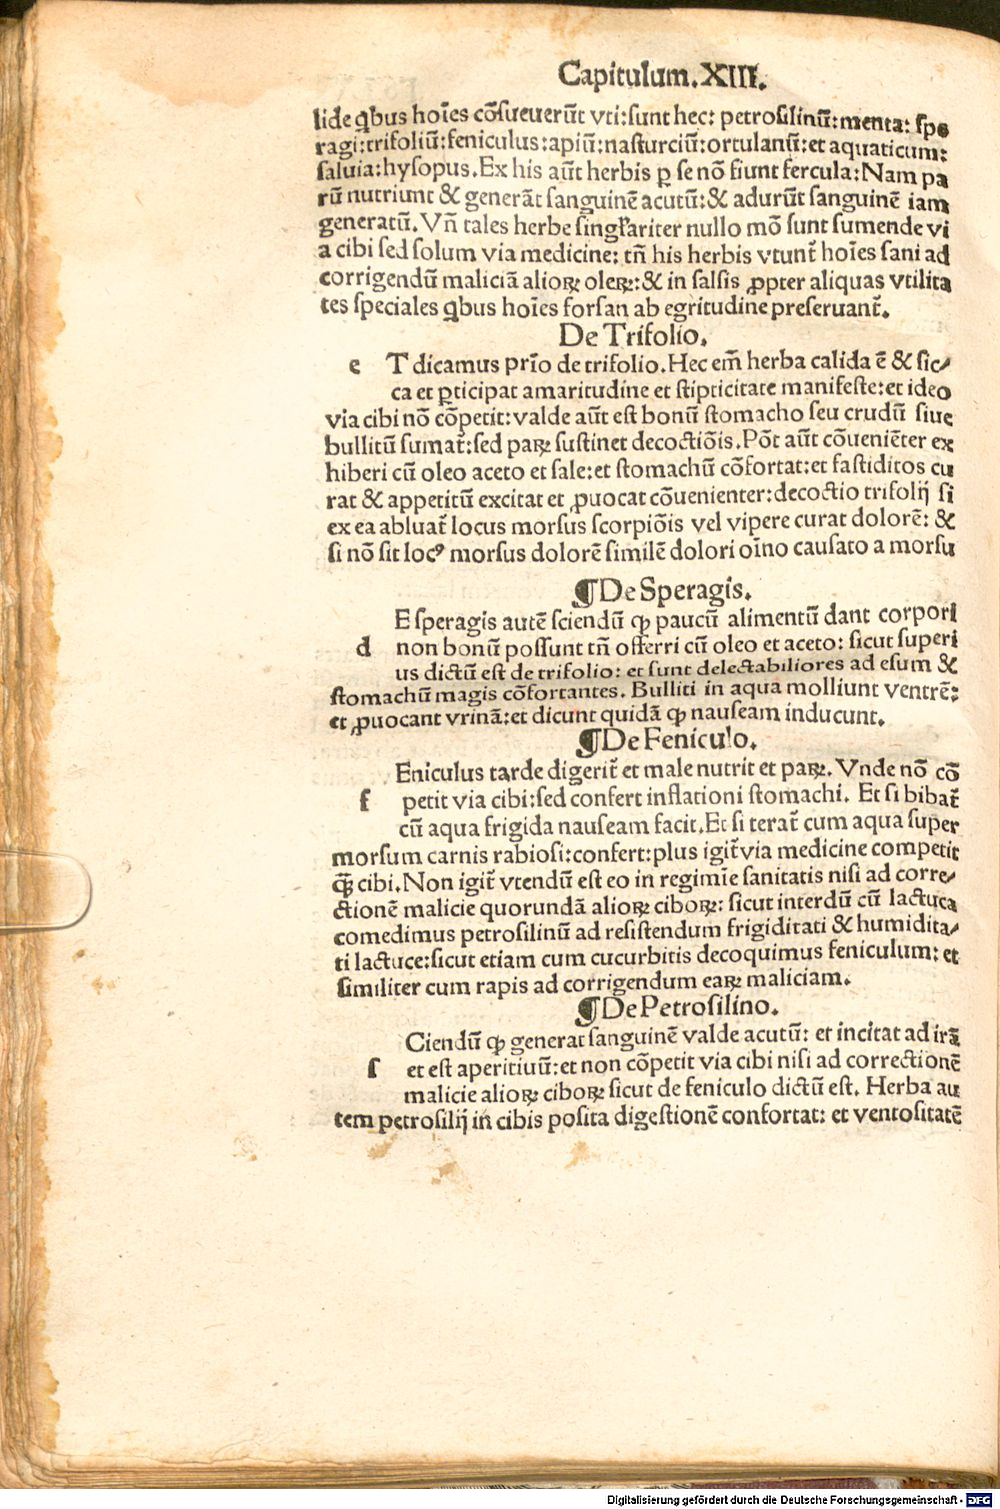 Capitulum.XIII.
lide q̄bus hoīes cōsueuerūt vti:sunt hec: petrosilinū:menta: spe
ragi:trifoliū:feniculus:apiū:nasturciū:ortulanū:et aquaticum:
saluia:hysopus.Ex his aūt herbis ꝑ se nō fiunt fercula:Nam pa
rū nutriunt & generāt sanguinē acutū:& adurūt sanguinē iam
generatū.Vn̄ tales herbe singl'ariter nullo mō sunt sumende vi
a cibi sed solum via medicine: tn̄ his herbis vtunt̄ hoīes sani ad
corrigendū maliciā alioꝝ oleꝝ:& in salsis ꝓpter aliquas vtilita
tes speciales q̄bus hoīes forsan ab egritudine preseruant̄.
De Trifolio.
e T dicamus prīo de trifolio.Hec em̄ herba calida ē & sic⸗
ca et ꝑticipat amaritudine et stipticitate manifeste:et ideo
via cibi nō cōpetit:valde aūt est bonū stomacho seu crudū siue
bullitū sumat̄:sed paꝝ sustinet decoctiōis.Pōt aūt cōueniēter ex
hiberi cū oleo aceto et sale:et stomachū cōfortat:et fastiditos cu
rat & appetitū excitat et ꝓuocat cōuenienter:decoctio trifolij si
ex ea abluat̄ locus morsus scorpiōis vel vipere curat dolorē: &
si nō sit locꝰ morsus dolorē similē dolori oīno causato a morsu
¶De Speragis.
E speragis autē sciendū ꝙ paucū alimentū dant corpori
d non bonū possunt tn̄ offerri cū oleo et aceto: sicut superi
us dictū est de trifolio: et sunt delectabiliores ad esum &
stomachū magis cōfortantes. Bulliti in aqua molliunt ventrē:
et ꝓuocant vrinā:et dicunt quidā ꝙ nauseam inducunt.
¶De Feniculo.
Eniculus tarde digerit̄ et male nutrit et paꝝ. Vnde nō cō
f petit via cibi:sed confert inflationi stomachi. Et si bibat̄
cū aqua frigida nauseam facit.Et si terat̄ cum aqua super
morsum carnis rabiosi:confert:plus igit̄ via medicine competit
q̄ꝫ cibi.Non igit̄ vtendū est eo in regimīe sanitatis nisi ad corre⸗
ctionē malicie quorundā alioꝝ ciboꝝ: sicut interdū cū lactuca
comedimus petrosilinū ad resistendum frigiditati & humidita⸗
ti lactuce:sicut etiam cum cucurbitis decoquimus feniculum: et
similiter cum rapis ad corrigendum eaꝝ maliciam.
¶De Petrosilino.
Ciendū ꝙ generat sanguinē valde acutū: et incitat ad irā
s et est aperitiuū:et non cōpetit via cibi nisi ad correctionē
malicie alioꝝ ciboꝝ sicut de feniculo dictū est. Herba au
tem petrosilij in cibis posita digestionē confortat: et ventositatē
Digitalisierung gefördert durch die Deutsche Forschungsgemeinschaft - DFG